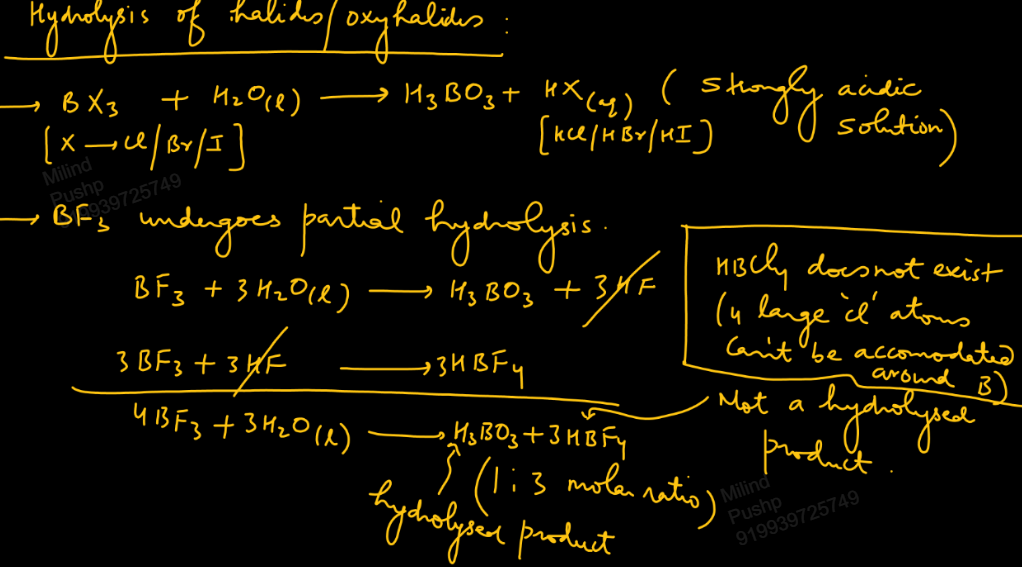 Hydrolysis of halides/oxyhalides :
→ BX₃ + H₂O(l) → H₃BO₃ + HX(aq) ( strongly acidic solution)
[X → Cl/Br/I] [HCl/HBr/HI]
Milind
Pushp
919939725749
→ BF₃ undergoes partial hydrolysis.
BF₃ + 3H₂O(l) → H₃BO₃ + 3HF
3BF₃ + 3HF → 3HBF₄
4BF₃ + 3H₂O(l) → H₃BO₃ + 3HBF₄
(1 : 3 molar ratio)
hydrolysed product
HBCl₄ does not exist
(4 large 'cl' atoms
Can't be accomodated
around B)
Not a hydrolysed
product.
Milind
Pushp
919939725749